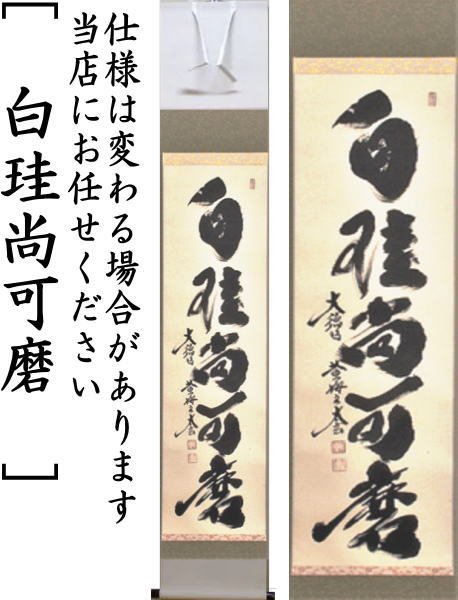 仕様は変わる場合があります
当店にお任せください
[白珪尚可磨]
白珪尚可磨
白珪尚可磨